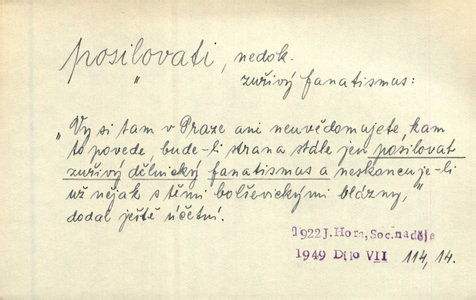 posilovati, nedok.
zuřivý fanatismus:
„Vy si tam v Praze ani neuvědomujete, kam
to povede bude-li strana stále jen posilovat
zuřivý dělnický fanatismus a neskoncuje-li
už nějak s těmi bolševickými blázny,"
dodal ještě účetní.
1922 J. Hora, Soc. naděje
1949 Dílo VII 114, 14.